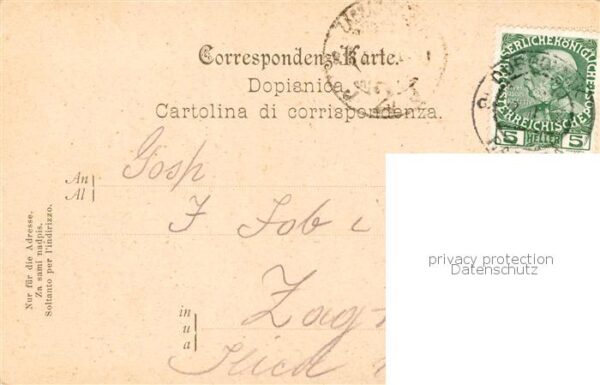 Correspondenz-Karte.
Dopisnica.
Cartolina di corrispondenza.
SERLICHEKÖNIGLICHE
ERREICHISCHE
5 HELLER 5
Gosp
An
Al
J Sob i
Zag
in
u
a
Ilica
Nur für die Adresse.
Za sami nadpis.
Soltanto per l'indirizzo.
privacy protection
Datenschutz